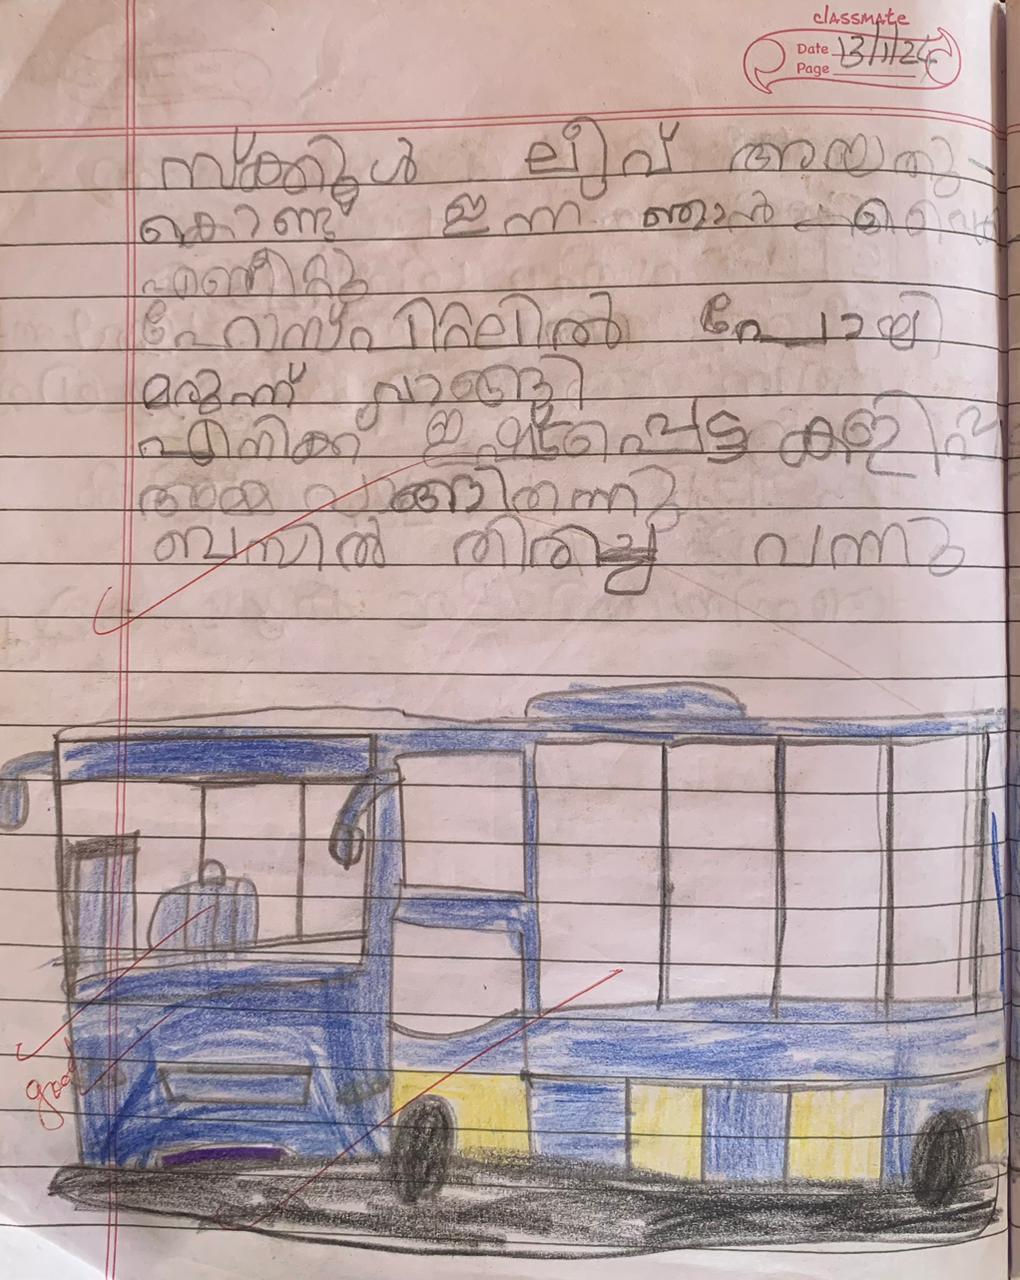 classmate
Date 13/1/24
Page
സ്കൂൾ ലീവ് ആയതു
കൊണ്ട് ഇന്ന ഞാൻ
എണീറ്റു
ഹോസ്പിറ്റലിൽ പോയി
മരുന്ന് വാങ്ങി
എനിക്ക് ഇഷ്ടപ്പെട്ട കളിപ്പ
അമ്മ വാങ്ങിതന്നു
ബസിൽ തിരിച്ച് വന്നു
good